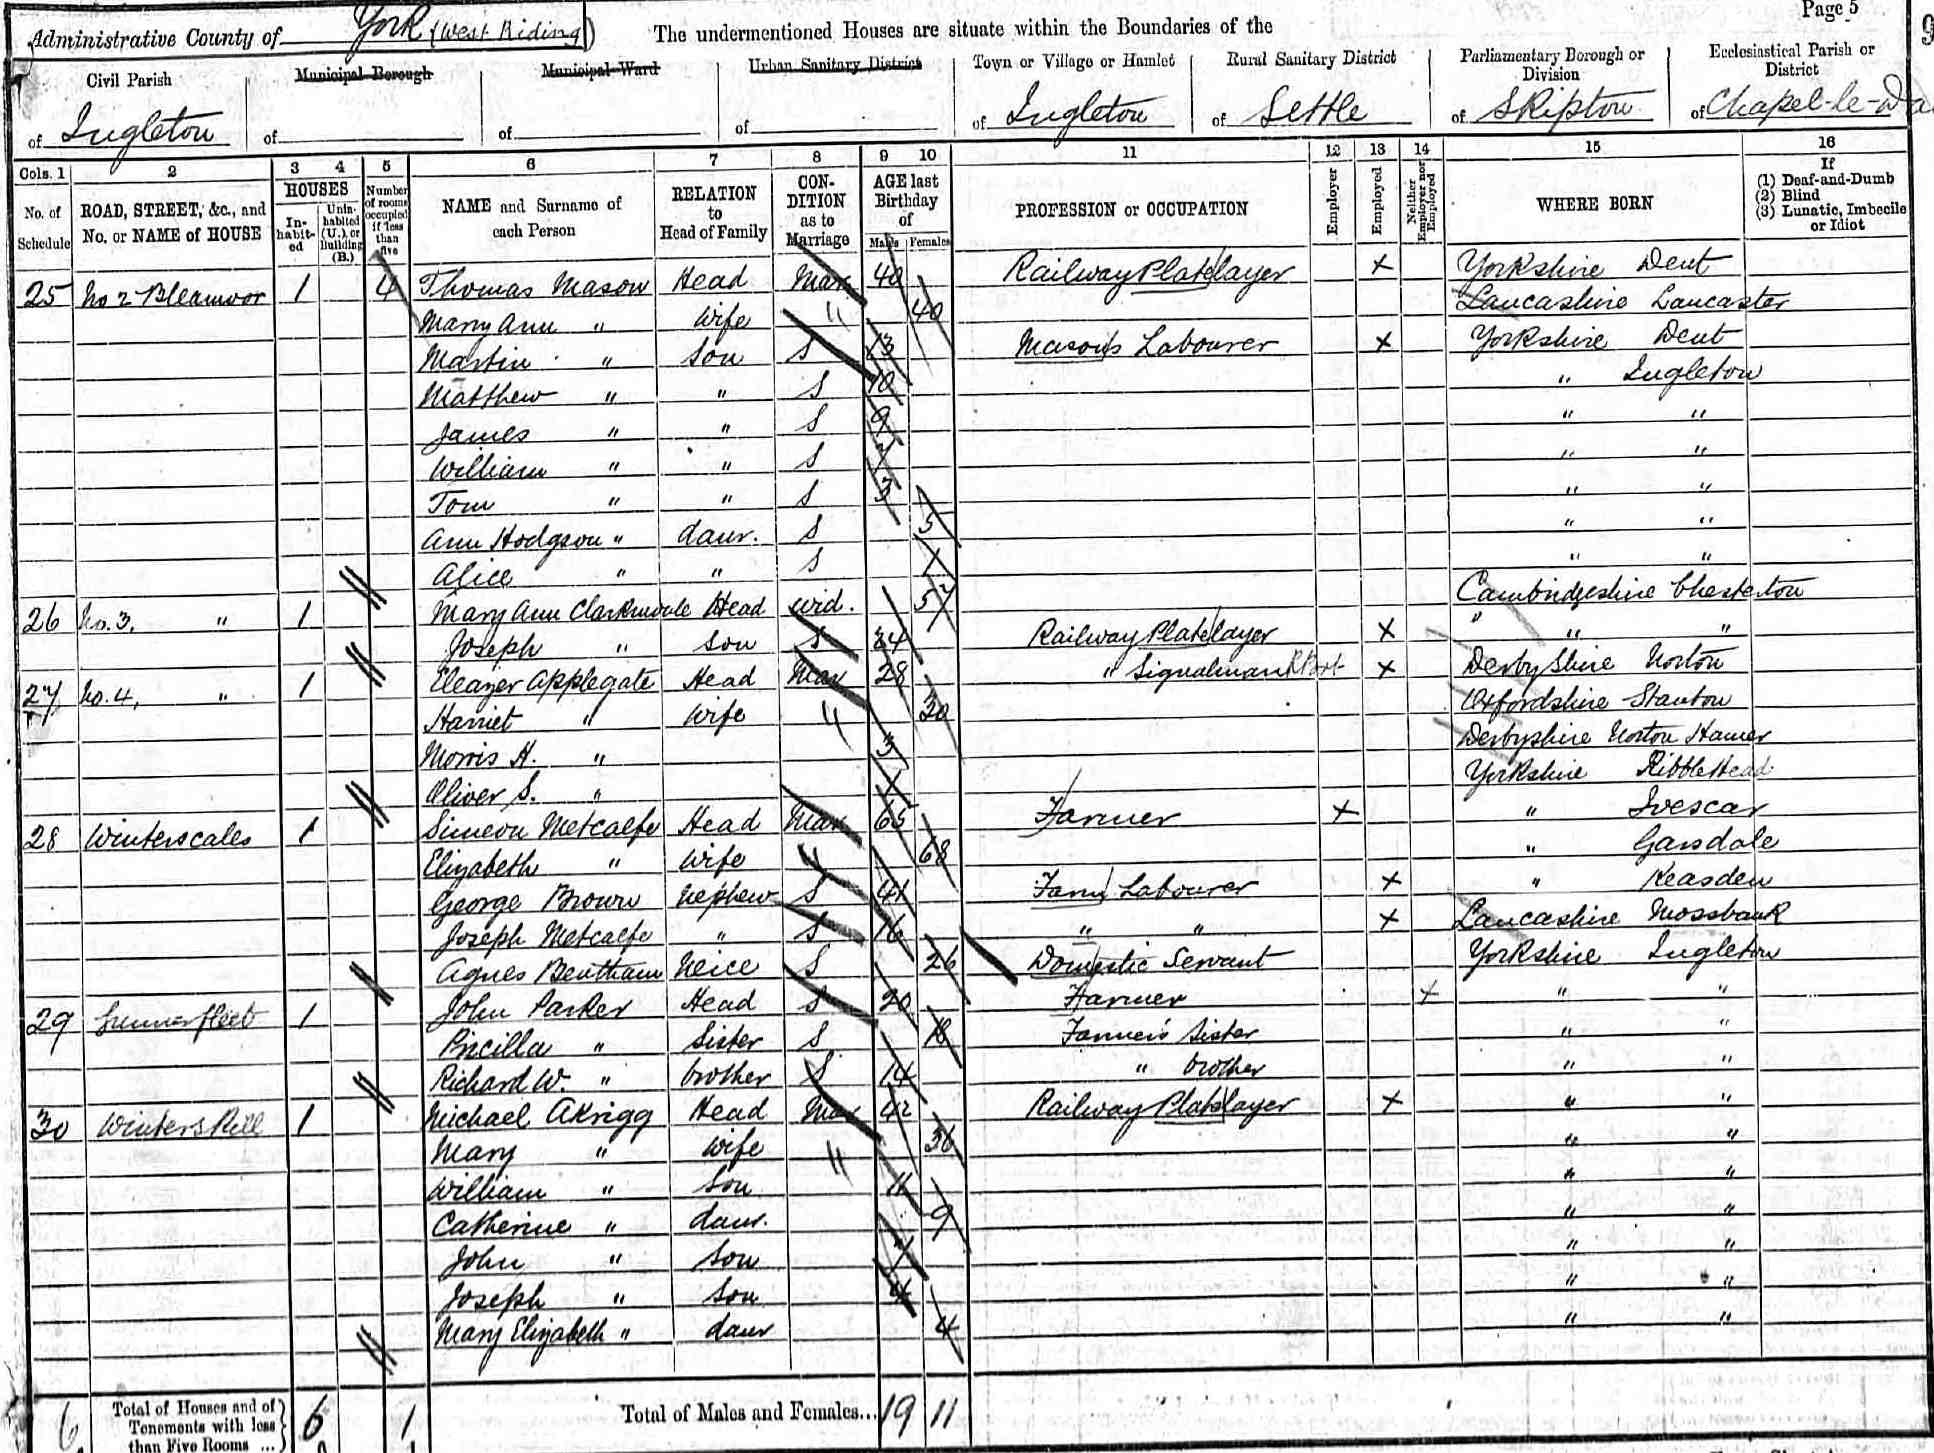 Page 5
Administrative County of York (West Riding) The undermentioned Houses are situate within the Boundaries of the
Civil Parish Municipal Borough Municipal Ward Urban Sanitary District Town or Village or Hamlet Rural Sanitary District Parliamentary Borough or Division Ecclesiastical Parish or District
of Ingleton of of of of Ingleton of Settle of Skipton of Chapel-le-Da
Cols. 1 2 3 4 5 6 7 8 9 10 11 12 13 14 15 16
No. of Schedule ROAD, STREET, &c., and No. or NAME of HOUSE HOUSES Inhabited Uninhabited (U.), or Building (B.) Number of rooms occupied if less than five NAME and Surname of each Person RELATION to Head of Family CONDITION as to Marriage AGE last Birthday of Males Females PROFESSION or OCCUPATION Employer Employed Neither Employer nor Employed WHERE BORN If (1) Deaf-and-Dumb (2) Blind (3) Lunatic, Imbecile or Idiot
25 No 2 Bleamoor 1 4 Thomas Mason Head Mar 40 Railway Platelayer X Yorkshire Dent
Mary Ann " Wife " 40 Lancashire Lancaster
Martin " Son S 13 Mason's Labourer X Yorkshire Dent
Matthew " " S 10 " Ingleton
James " " S 9 " "
William " " S 7 " "
Tom " " S 3 " "
Ann Hodgson " daur. S 5 " "
Alice " " S 1 " "
26 No. 3, " 1 Mary Ann Head Wid. 57 Cambridgeshire Chesterton
Joseph " Son S 24 Railway Platelayer X " " "
27 No. 4, " 1 Eleazer Applegate Head Mar 28 " Signalman X Derbyshire Norton
Harriet " Wife " 30 Oxfordshire Stanton
Morris H. " 3 Derbyshire Norton
Oliver S. " 1 Yorkshire RibbleHead
28 Winterscales 1 Simeon Metcalfe Head Mar 65 Farmer X " Ivescar
Elizabeth " Wife " 68 " Garsdale
George Brown Nephew S 41 Farm Labourer X " Keasden
Joseph Metcalfe " S 16 " " X Lancashire Mossbank
Agnes Bentham Neice S 26 Domestic Servant Yorkshire Ingleton
29 1 John Parker Head S 20 Farmer X " "
Pricilla " Sister S 18 Farmer's Sister " "
Richard W. " brother S 14 " brother " "
30 1 Michael Akrigg Head Mar 42 Railway Platelayer X " "
Mary " Wife " 36 " "
William " Son 11 " "
Catherine " daur. 9 " "
John " Son 7 " "
Joseph " Son 4 " "
Mary Elizabeth " daur 4 " "
6 Total of Houses and of Tenements with less than Five Rooms ... 6 1 Total of Males and Females... 19 11